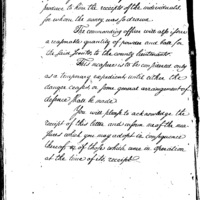 produce to him the receipts of the individuals
for whom the money was so drawn.
The commanding officer will also issue
a reasonable quantity of powder and lead for
the said to the county lieutenant.
This measure is to be considered only
as a temporary expedient until either the
danger ceases or some general arrangement of
defence shall be made.
You will please to acknowledge the
receipt of this letter and inform me of the mea
sures which you may adopt in consequence
thereof or of those which were in operation
at the time of its receipt.